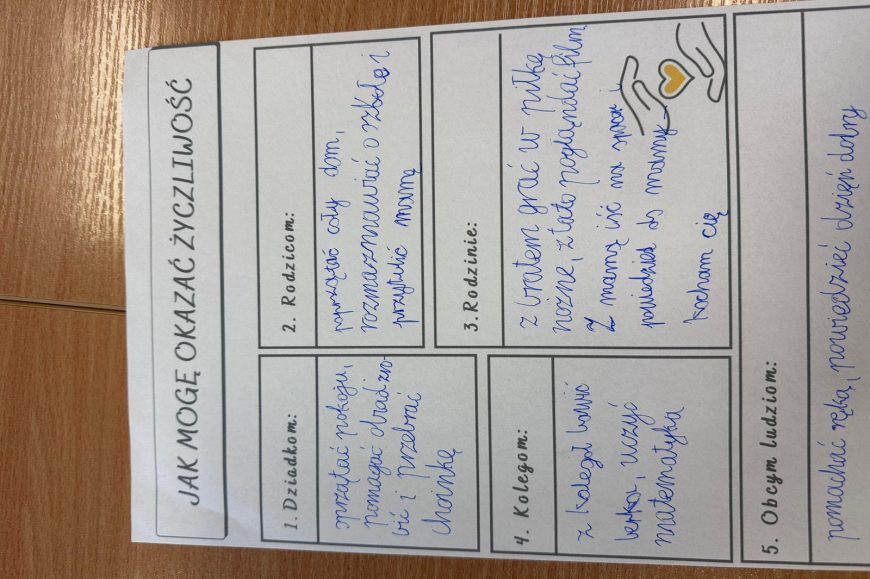 JAK MOGĘ OKAZAĆ ŻYCZLIWOŚĆ
1. Dziadkom:
sprzątać pokoju,
pomagać obiad zro-
bić i przebrać
choinkę
2. Rodzicom:
poprzątać cały dom,
rozmaznawiać o szkole i
przytulić mamę
3. Rodzinie:
z bratem grać w piłkę
nożne, z tato poglądać film
z mamą iść na
powiedzieć do mamy-
kocham cię
4. Kolegom:
z kolegą bawić
uczyć
matematyka
5. Obcym ludziom:
pomachać ręką, powiedzieć dzięń dobry